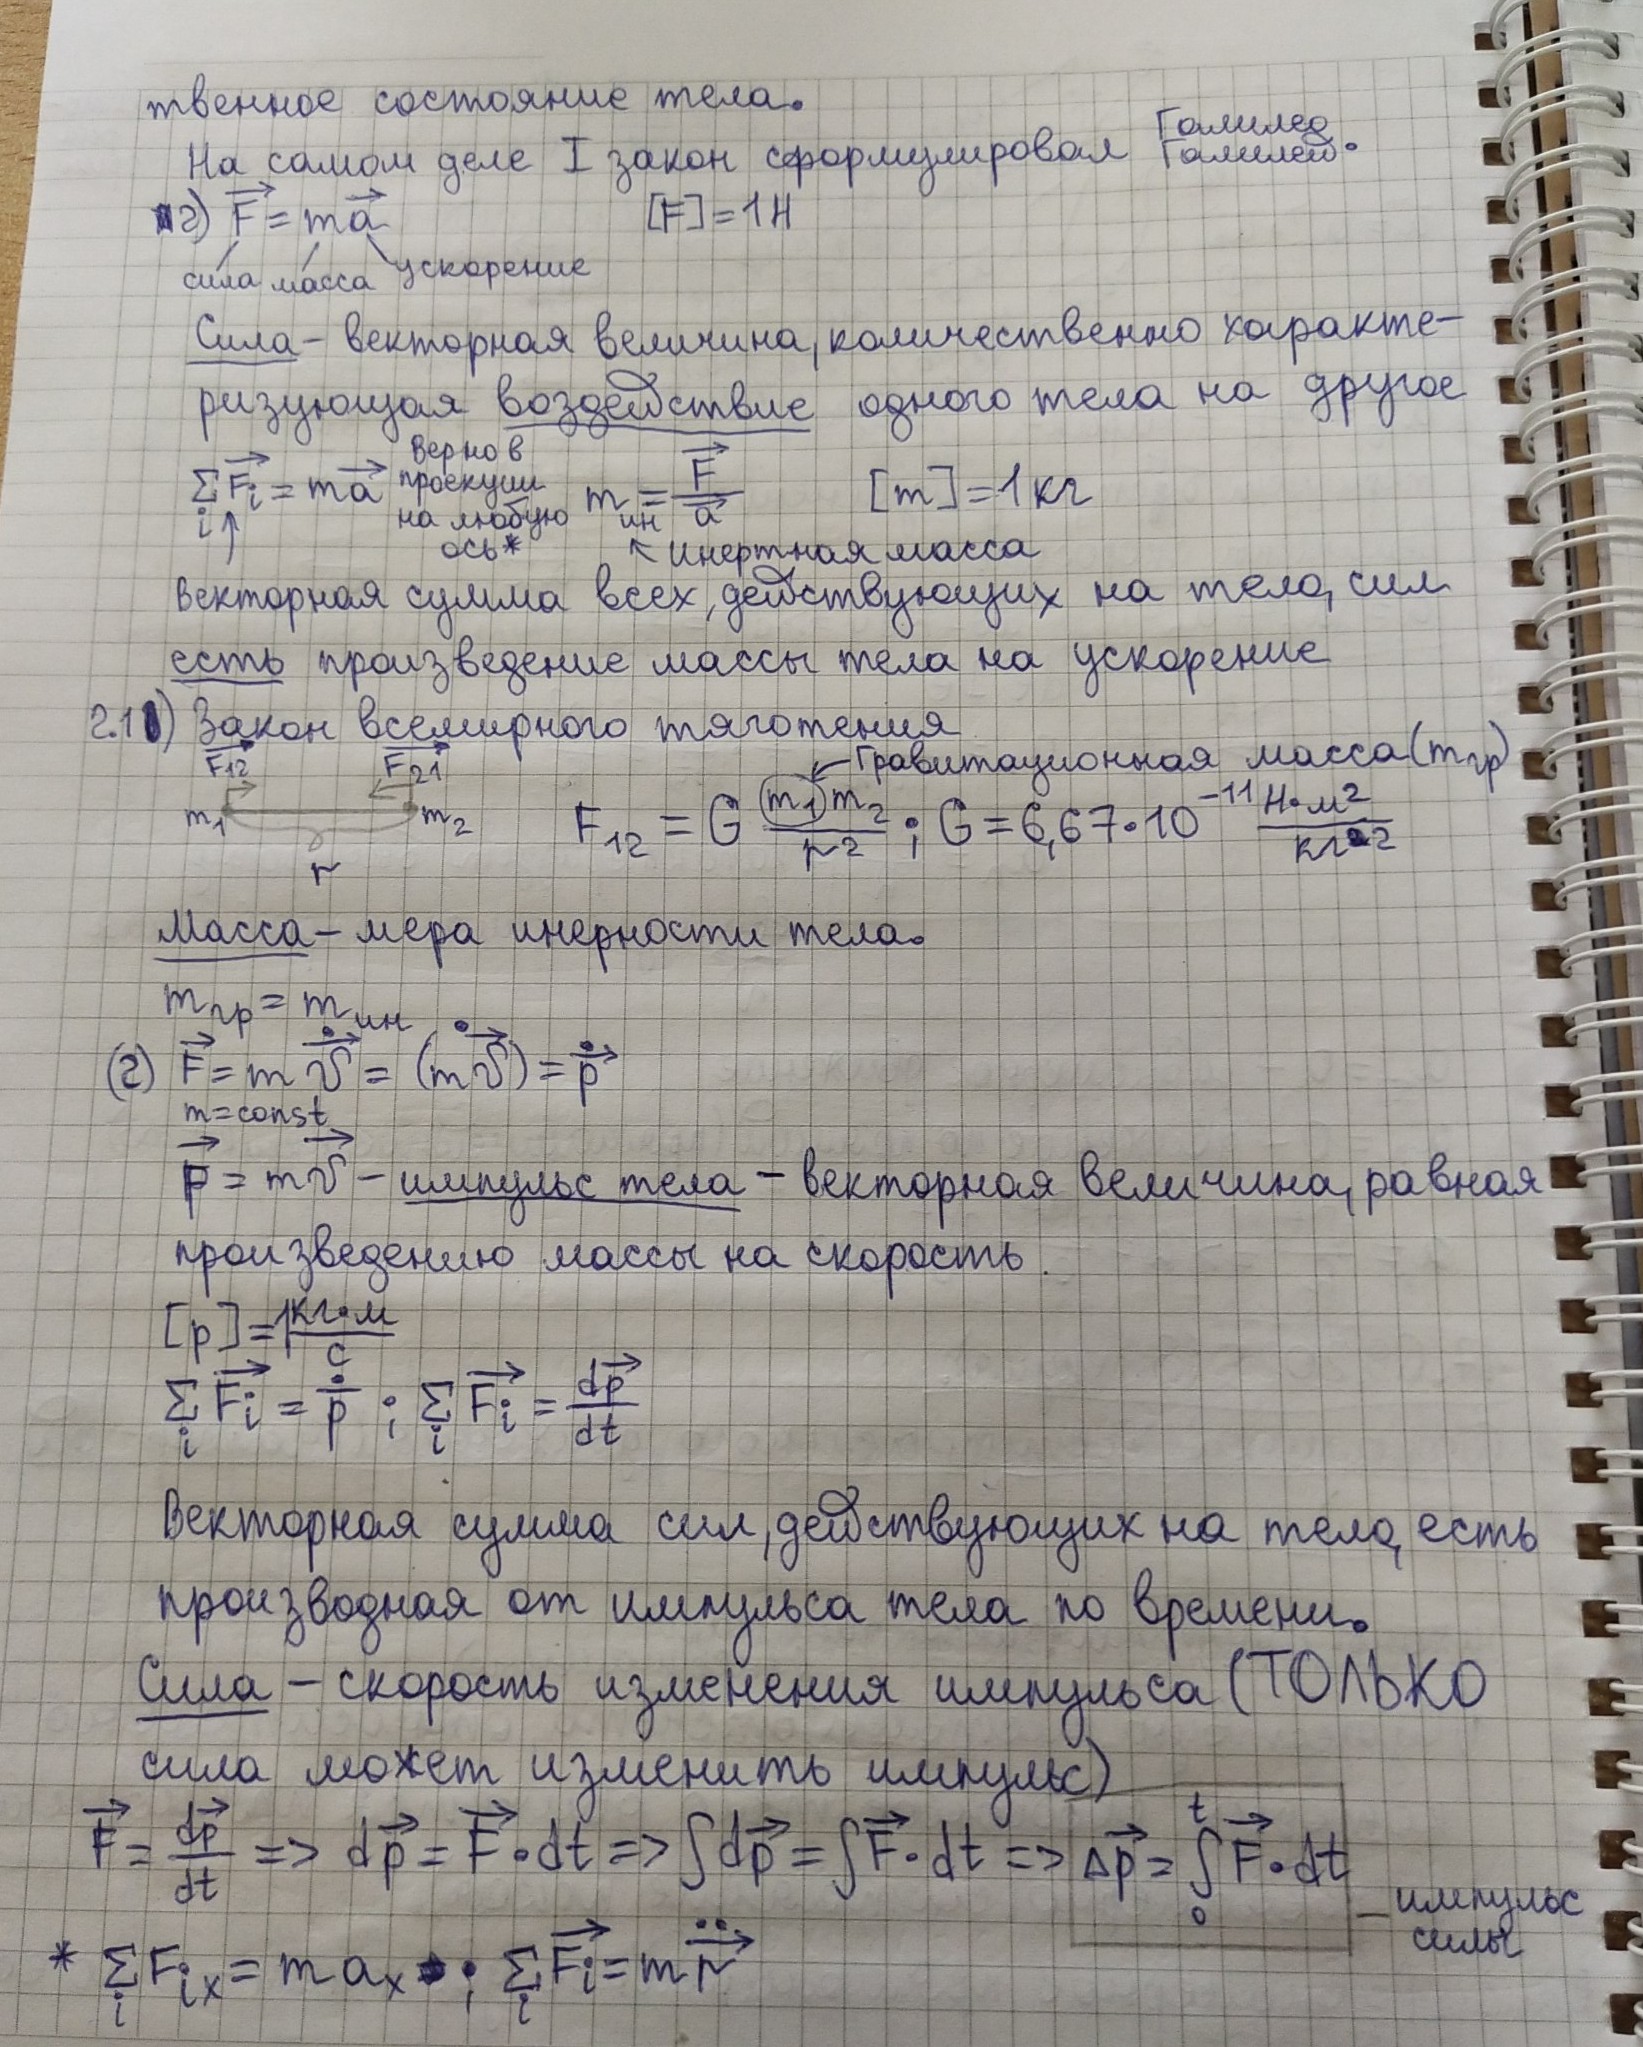 твенное состояние тела.
На самом деле I закон сформулировал Галилео Галилей.
2) F⃗ = ma⃗ [F] = 1 Н
сила масса ускорение
Сила – векторная величина, количественно характе-
ризующая воздействие одного тела на другое
∑ᵢ F⃗ᵢ = ma⃗ Верно в проекции на любую ось* m_ин = F⃗/a⃗ [m] = 1 кг
↖ Инертная масса
Векторная сумма всех, действующих на тело, сил
есть произведение массы тела на ускорение
2.1) Закон всемирного тяготения
F⃗₁₂ F⃗₂₁ Гравитационная масса (m_гр)
m₁ m₂ F₁₂ = G m₁m₂/r² ; G = 6,67·10⁻¹¹ Н·м²/кг²
r
Масса – мера инерности тела.
m_гр = m_ин
(2) F⃗ = m v⃗̇ = (mv⃗)̇ = p⃗̇
m = const
p⃗ = mv⃗ – импульс тела – векторная величина, равная
произведению массы на скорость.
[p] = 1 кг·м/с
∑ᵢ F⃗ᵢ = ṗ ; ∑ᵢ F⃗ᵢ = dp⃗/dt
Векторная сумма сил, действующих на тело, есть
производная от импульса тела по времени.
Сила – скорость изменения импульса (ТОЛЬКО
сила может изменить импульс)
F⃗ = dp⃗/dt => dp⃗ = F⃗·dt => ∫dp⃗ = ∫F⃗·dt => Δp⃗ = ∫₀ᵗ F⃗·dt – импульс силы
* ∑ᵢ Fᵢₓ = maₓ ; ∑ᵢ F⃗ᵢ = m r⃗̈